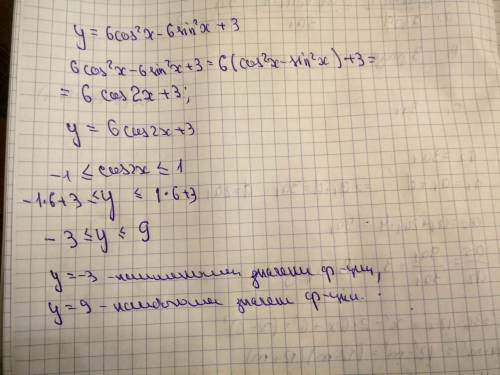 y = 6cos²x - 6sin²x + 3
6cos²x - 6sin²x + 3 = 6(cos²x - sin²x) + 3 =
= 6 cos2x + 3;
y = 6cos2x + 3
-1 ≤ cos2x ≤ 1
-1·6+3 ≤ y ≤ 1·6+3
-3 ≤ y ≤ 9
y = -3 - наименьшее значение ф-ции,
y = 9 - наибольшее значение ф-ции.